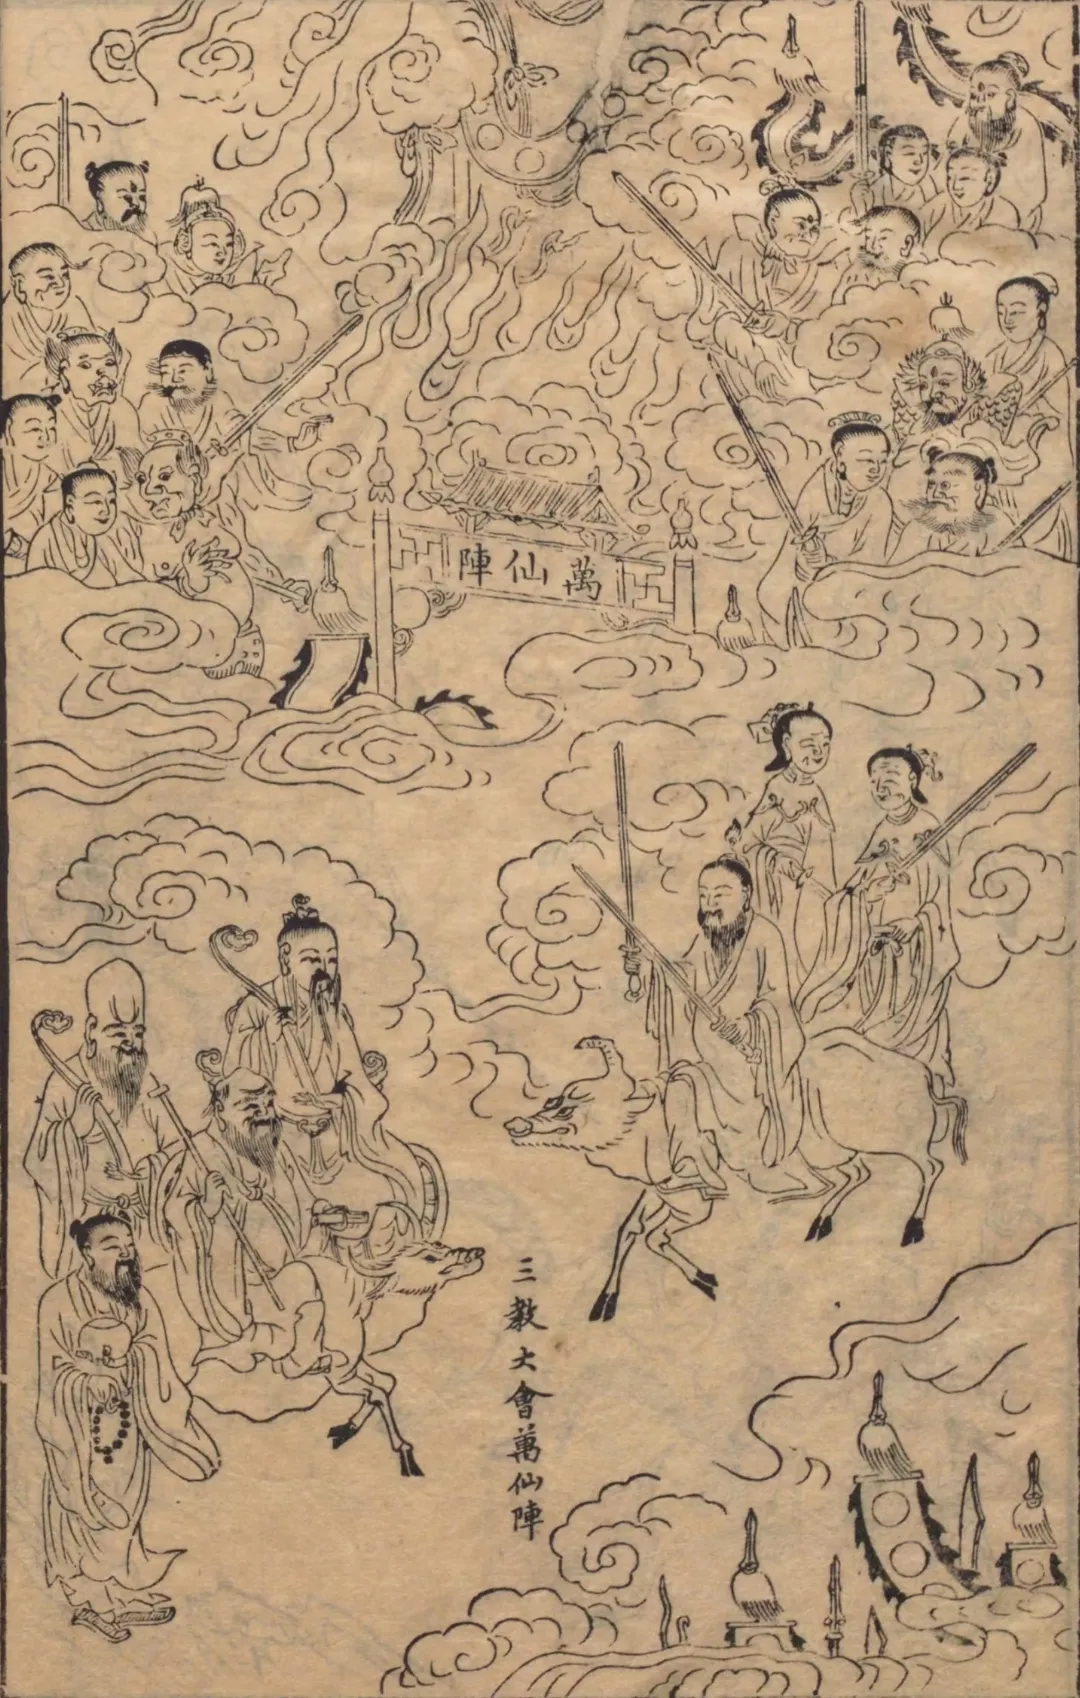 萬仙陣
三教大會萬仙陣